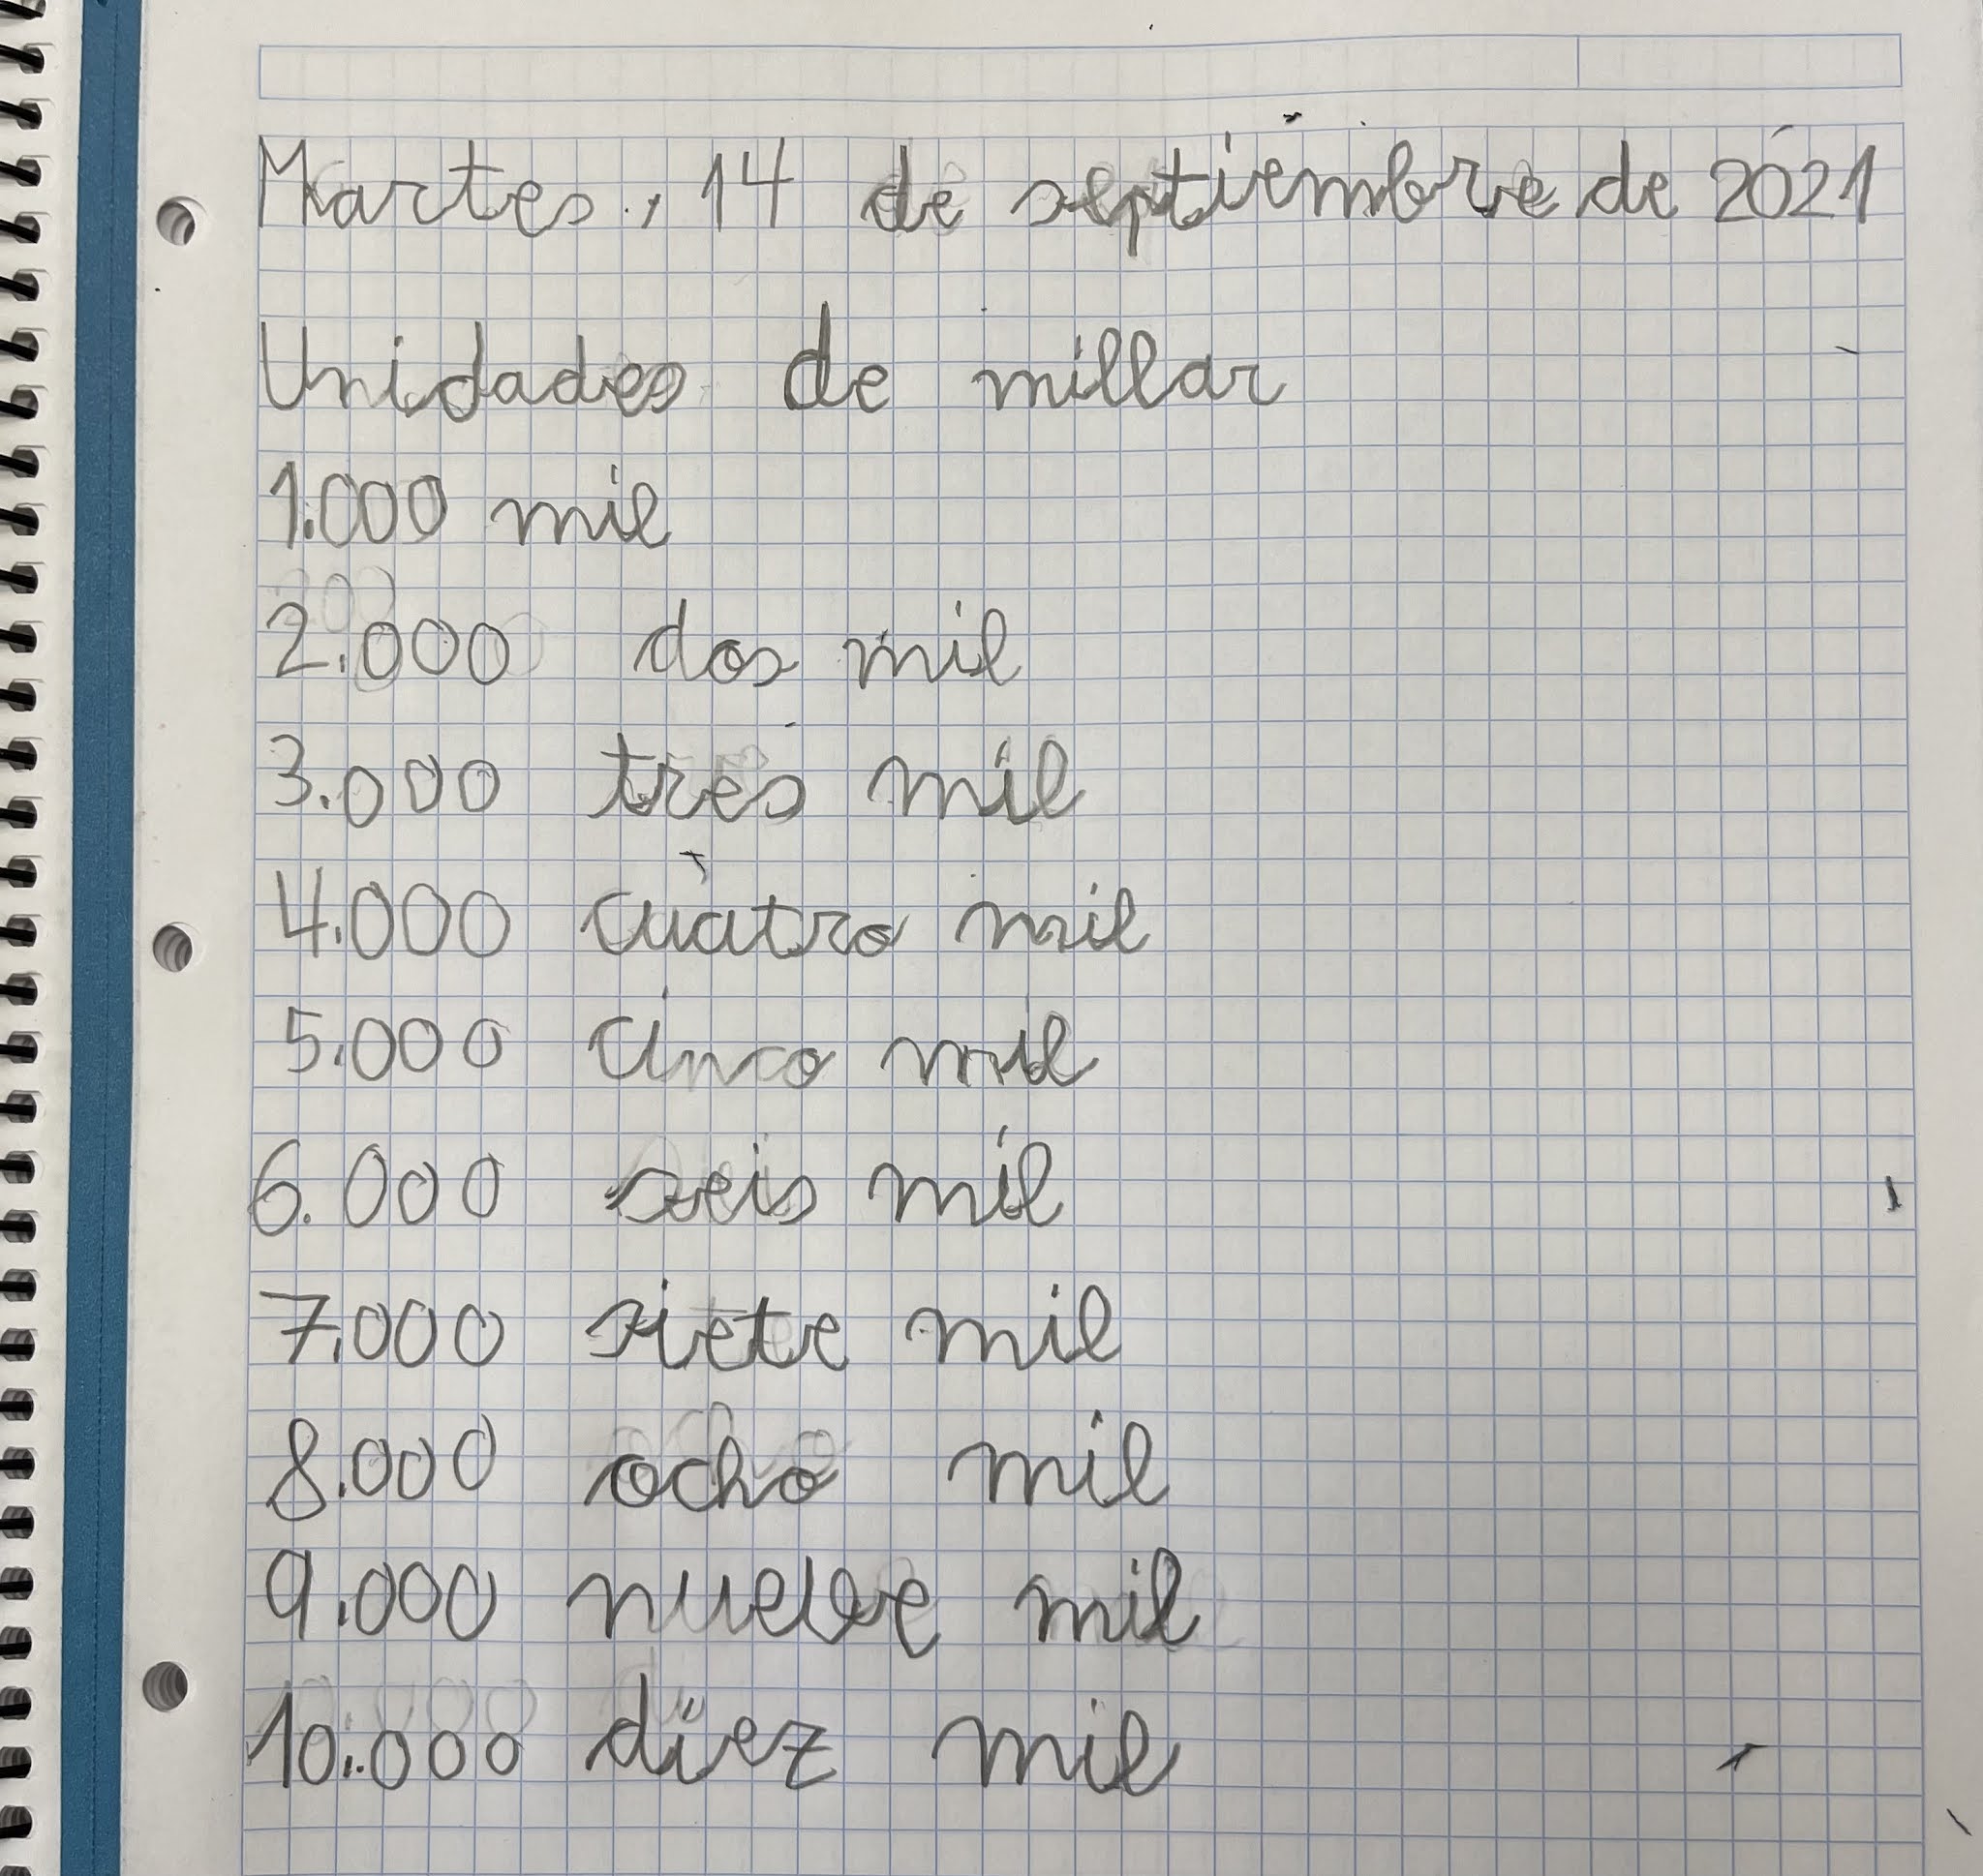 Martes, 14 de septiembre de 2021
Unidades de millar
1.000 mil
2.000 dos mil
3.000 tres mil
4.000 cuatro mil
5.000 cinco mil
6.000 seis mil
7.000 siete mil
8.000 ocho mil
9.000 nueve mil
10.000 diez mil